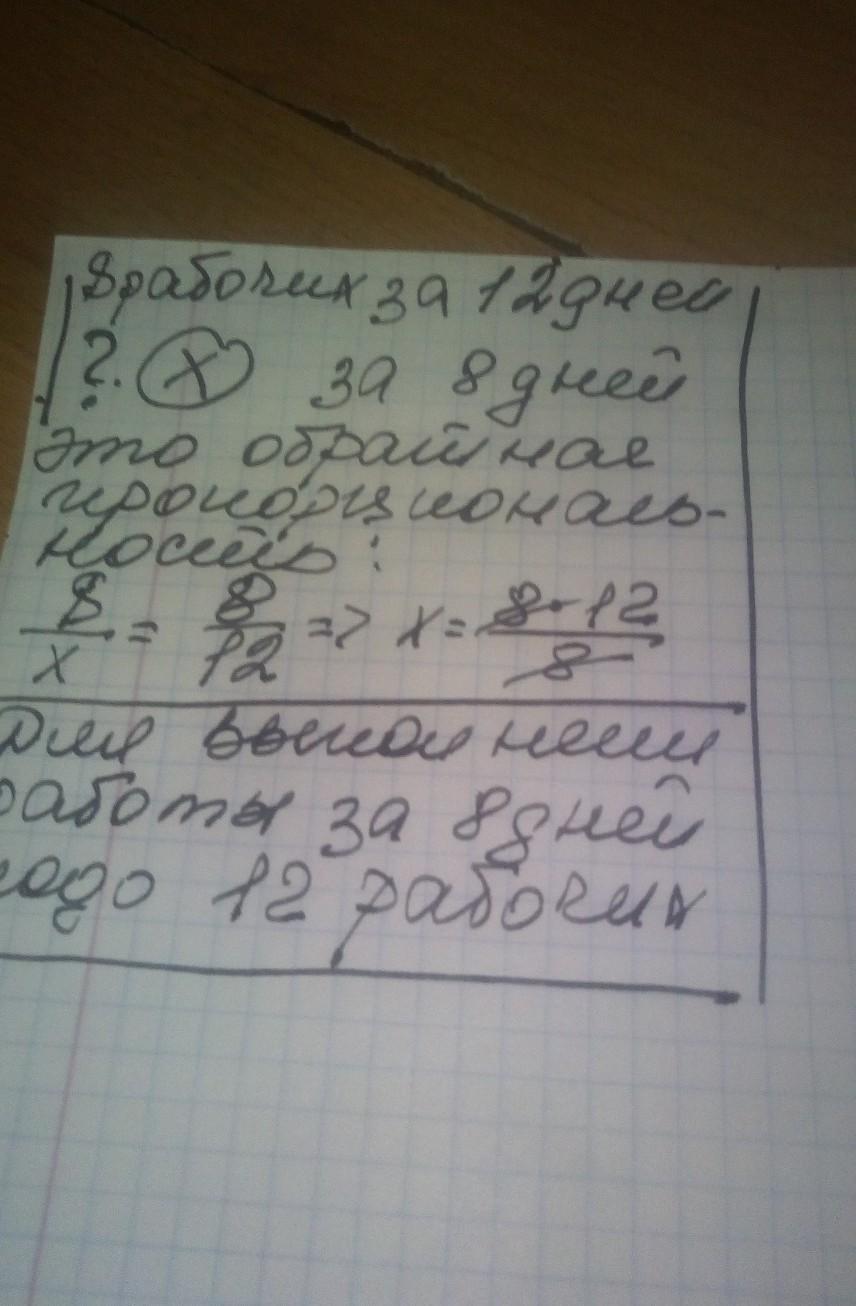 8 рабочих за 12 дней
?. X за 8 дней
это обратная
пропорциональ-
ность:
8/x = 8/12 => x = 8·12/8
Для выполнени
работы за 8 дней
надо 12 рабочих